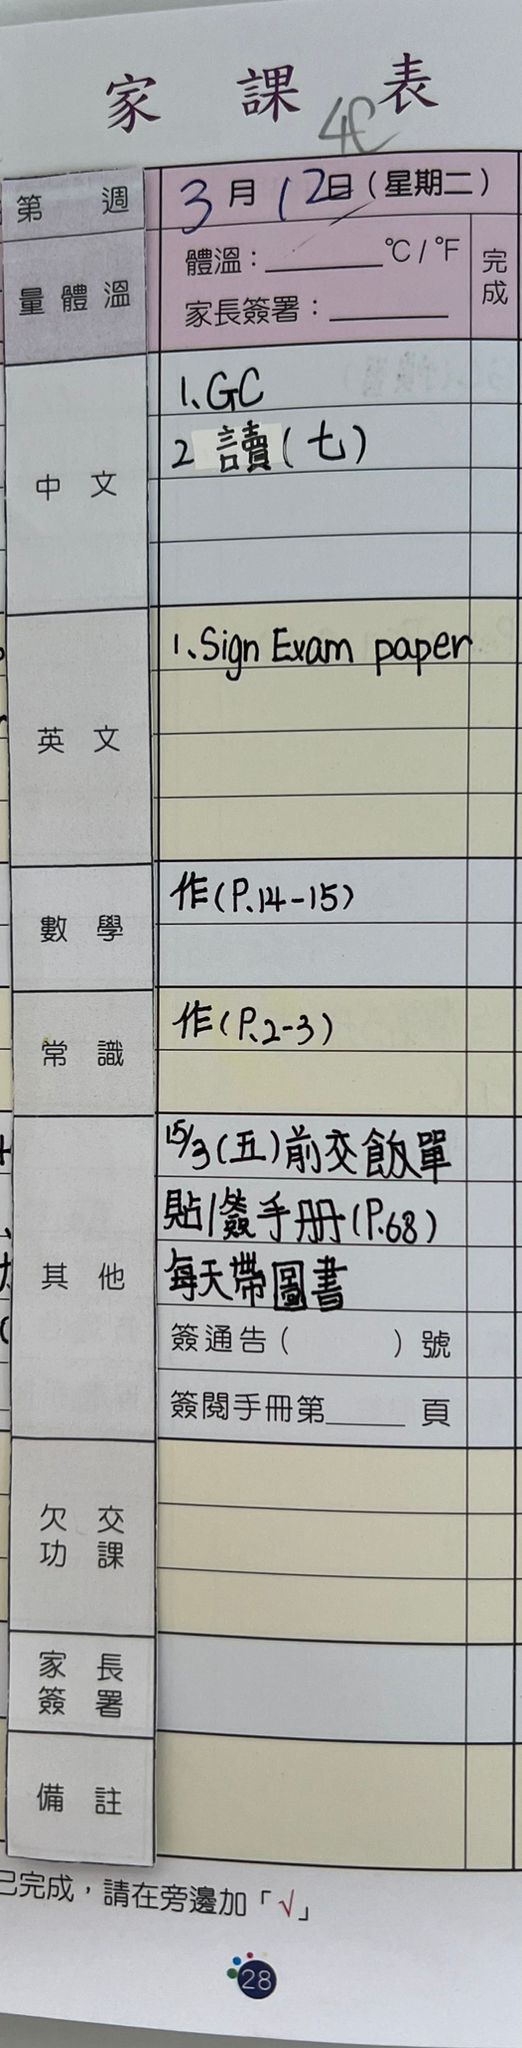 家 課 表
4C
第 週 3月12日(星期二)
量體溫 體溫：______°C/°F 完成
家長簽署：______
中文 1、GC
2 讀(七)
英文 1、Sign Exam paper
數學 作(P.14-15)
常識 作(P.2-3)
其他 15/3(五)前交飯單
貼/簽手册(P.68)
每天帶圖書
簽通告( )號
簽閱手冊第______頁
欠交功課
家長簽署
備註
已完成，請在旁邊加「√」
28